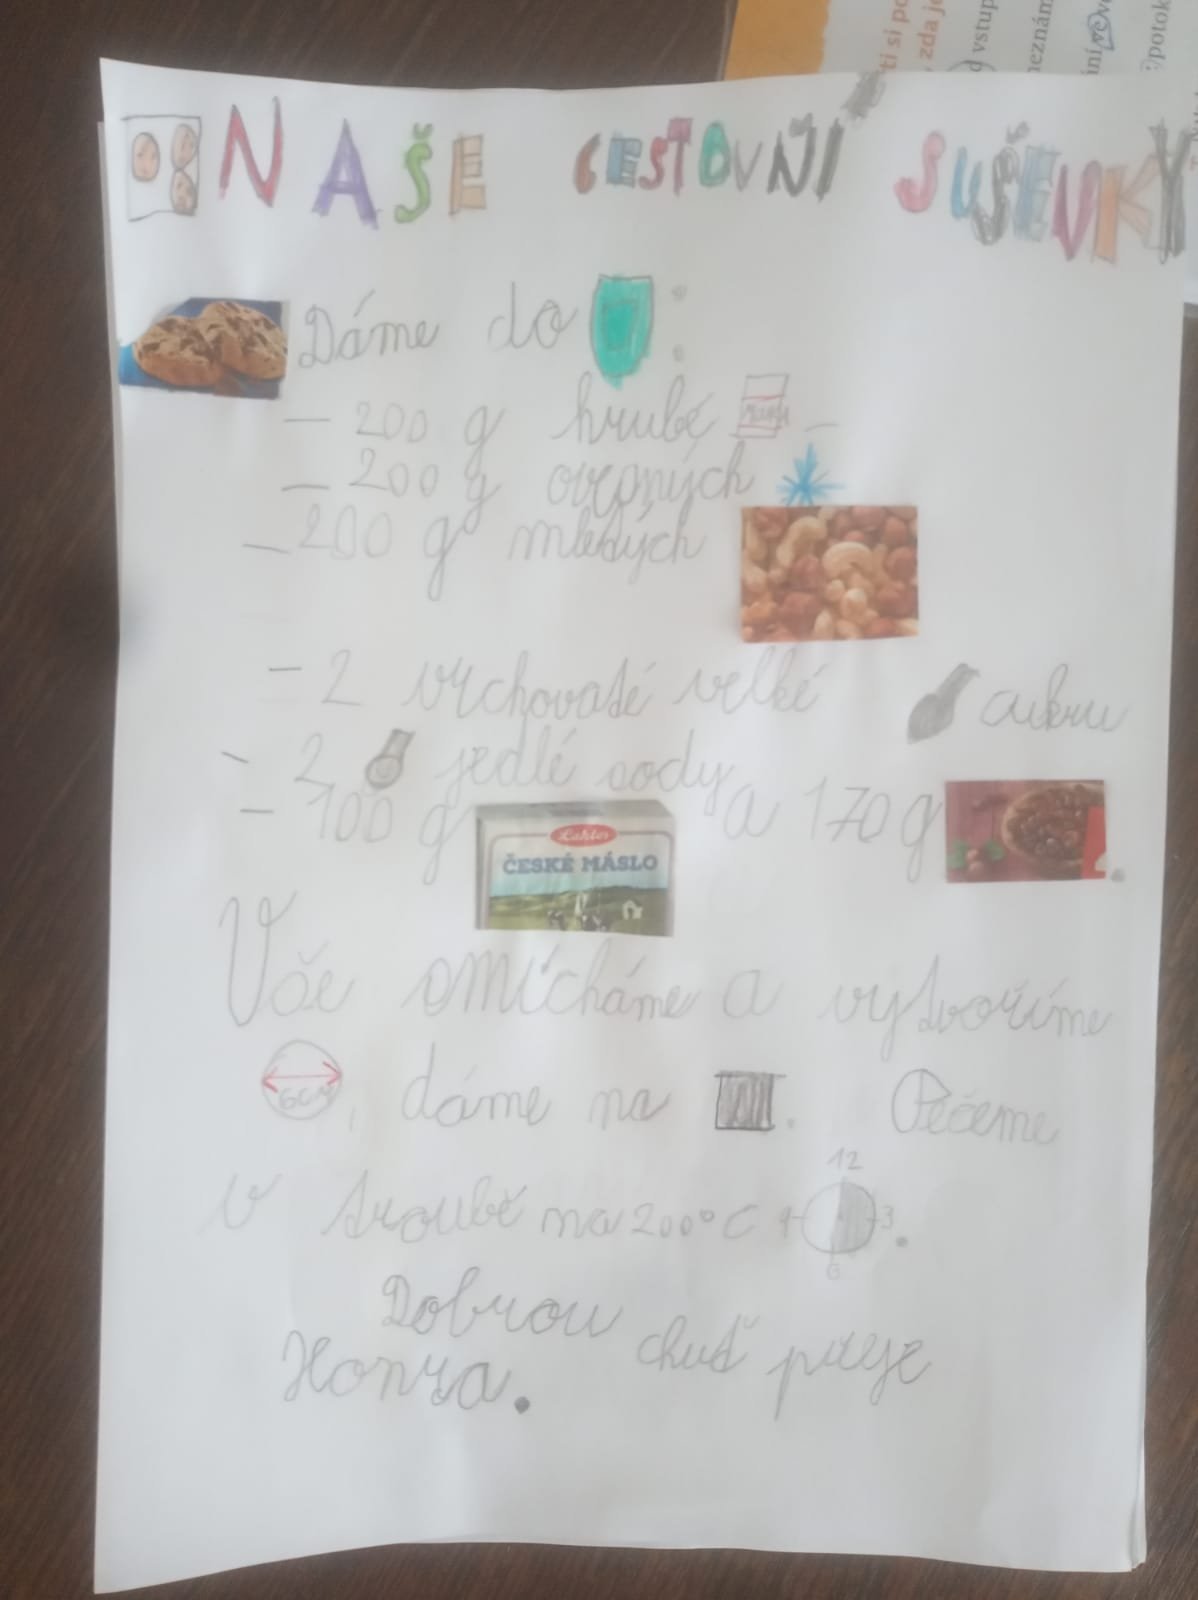 NAŠE CESTOVNÍ SUŠENKY
Dáme do :
- 200 g hrubé MOUKA -
- 200 g ovesných
- 200 g mletých
- 2 vrchovaté velké cukru
- 2 jedlé sody
- 100 g Lakler ČESKÉ MÁSLO a 170 g .
Vše smícháme a vytvoříme
6cm , dáme na . Pečeme
v troubě na 200°C 12 3 6 9 .
Dobrou chuť přeje
Honza.
ti si po
zda je
d vstup
neznám
potok